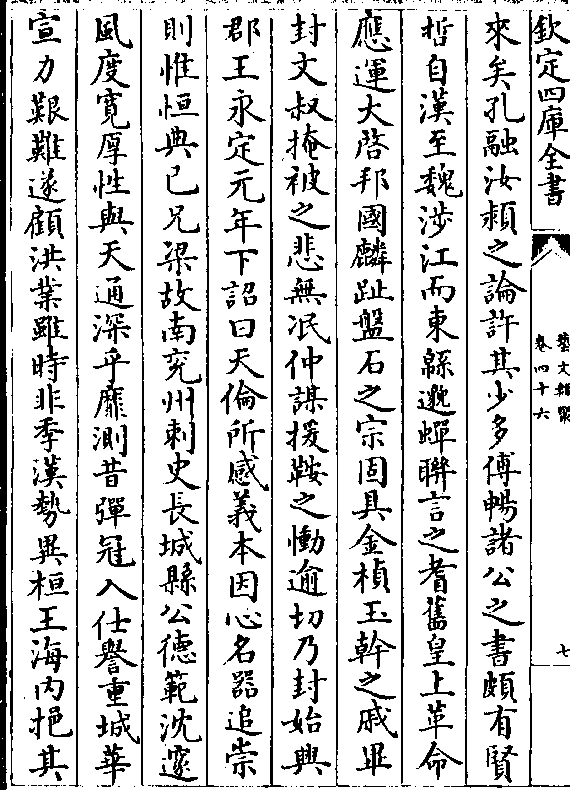 欽定四庫全書
藝文類聚
卷四十六
七
來矣孔融汝潁之論許其少多傅暢諸公之書頗有賢
哲自漢至魏涉江而東緜邈蟬聯言之耆舊皇上革命
應運大啓邦國麟趾盤石之宗固具金楨玉幹之戚畢
封文叔掩被之悲無泯仲謀援鞍之慟逾切乃封始興
郡王永定元年下詔曰天倫所感義本因心名器追崇
則惟恒典已兄梁故南兖州刺史長城縣公德範沈邃
風度寛厚性與天通深乎靡測昔彈冠入仕譽重城華
宣力艱難遂顧洪業雖時非季漢勢異桓王海内挹其